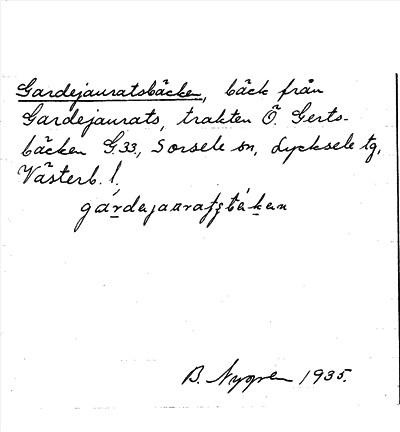 Gardejauratsbäcken, bäck från
Gardejaurats, trakten Ö. Gerts-
bäcken G.33, Sorsele sn, Lycksele tg,
Västerb. l.
B. Nygren 1935.